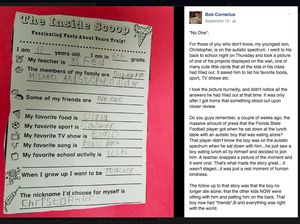 The Inside Scoop
Fascinating Facts About Yours Truly!
I am years old. I am in grade.
My teacher is
The members of my family are
Some of my friends are NO ONE
My favorite food is PIZZA
My favorite sport is
My favorite TV show is
My favorite song is
My favorite school activity is
When I grow up I want to be
The nickname I'd choose for myself is
Bob Cornelius
September 18
"No One":
For those of you who don't know, my youngest son,
Christopher, is on the autistic spectrum. I went to his
back to school night on Thursday and took a picture
of one of his projects displayed on the wall, one of
many cute little cards that all the kids in his class
had filled out. It asked him to list his favorite foods,
sport, TV shows etc.
I took the picture hurriedly, and didn't notice all the
answers he had filled out at that time. It was only
after I got home that something stood out upon
closer review.
Do you guys remember, a couple of weeks ago, the
massive amount of press that the Florida State
Football player got when he sat down at the lunch
table with an autistic boy that was eating alone?
That player didn't know the boy was on the autistic
spectrum when he sat down with him..he just saw a
boy eating lunch all by himself and decided to join
him. A teacher snapped a picture of the moment and
it went viral. That's what made the story great...it
wasn't staged...it was just a real moment of human
kindness.
The follow up to that story was that the boy no
longer ate alone, that the other kids NOW were
sitting with him and patting him on the back. That
boy now had "friends".B and everything was right
with the world.